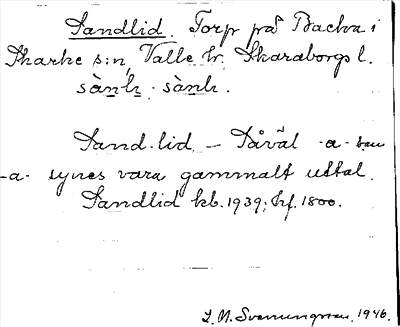 Sandlid. Torp på Backa i
Skarke s:n, Valle hr, Skaraborgs l.
sàn̲l̲ı̲. sànlı.
Sand-lid. – Såväl -a- som
-a- synes vara gammalt uttal.
Sandlid kb. 1939; hf. 1800.
L. M. Svenungsson. 1946.